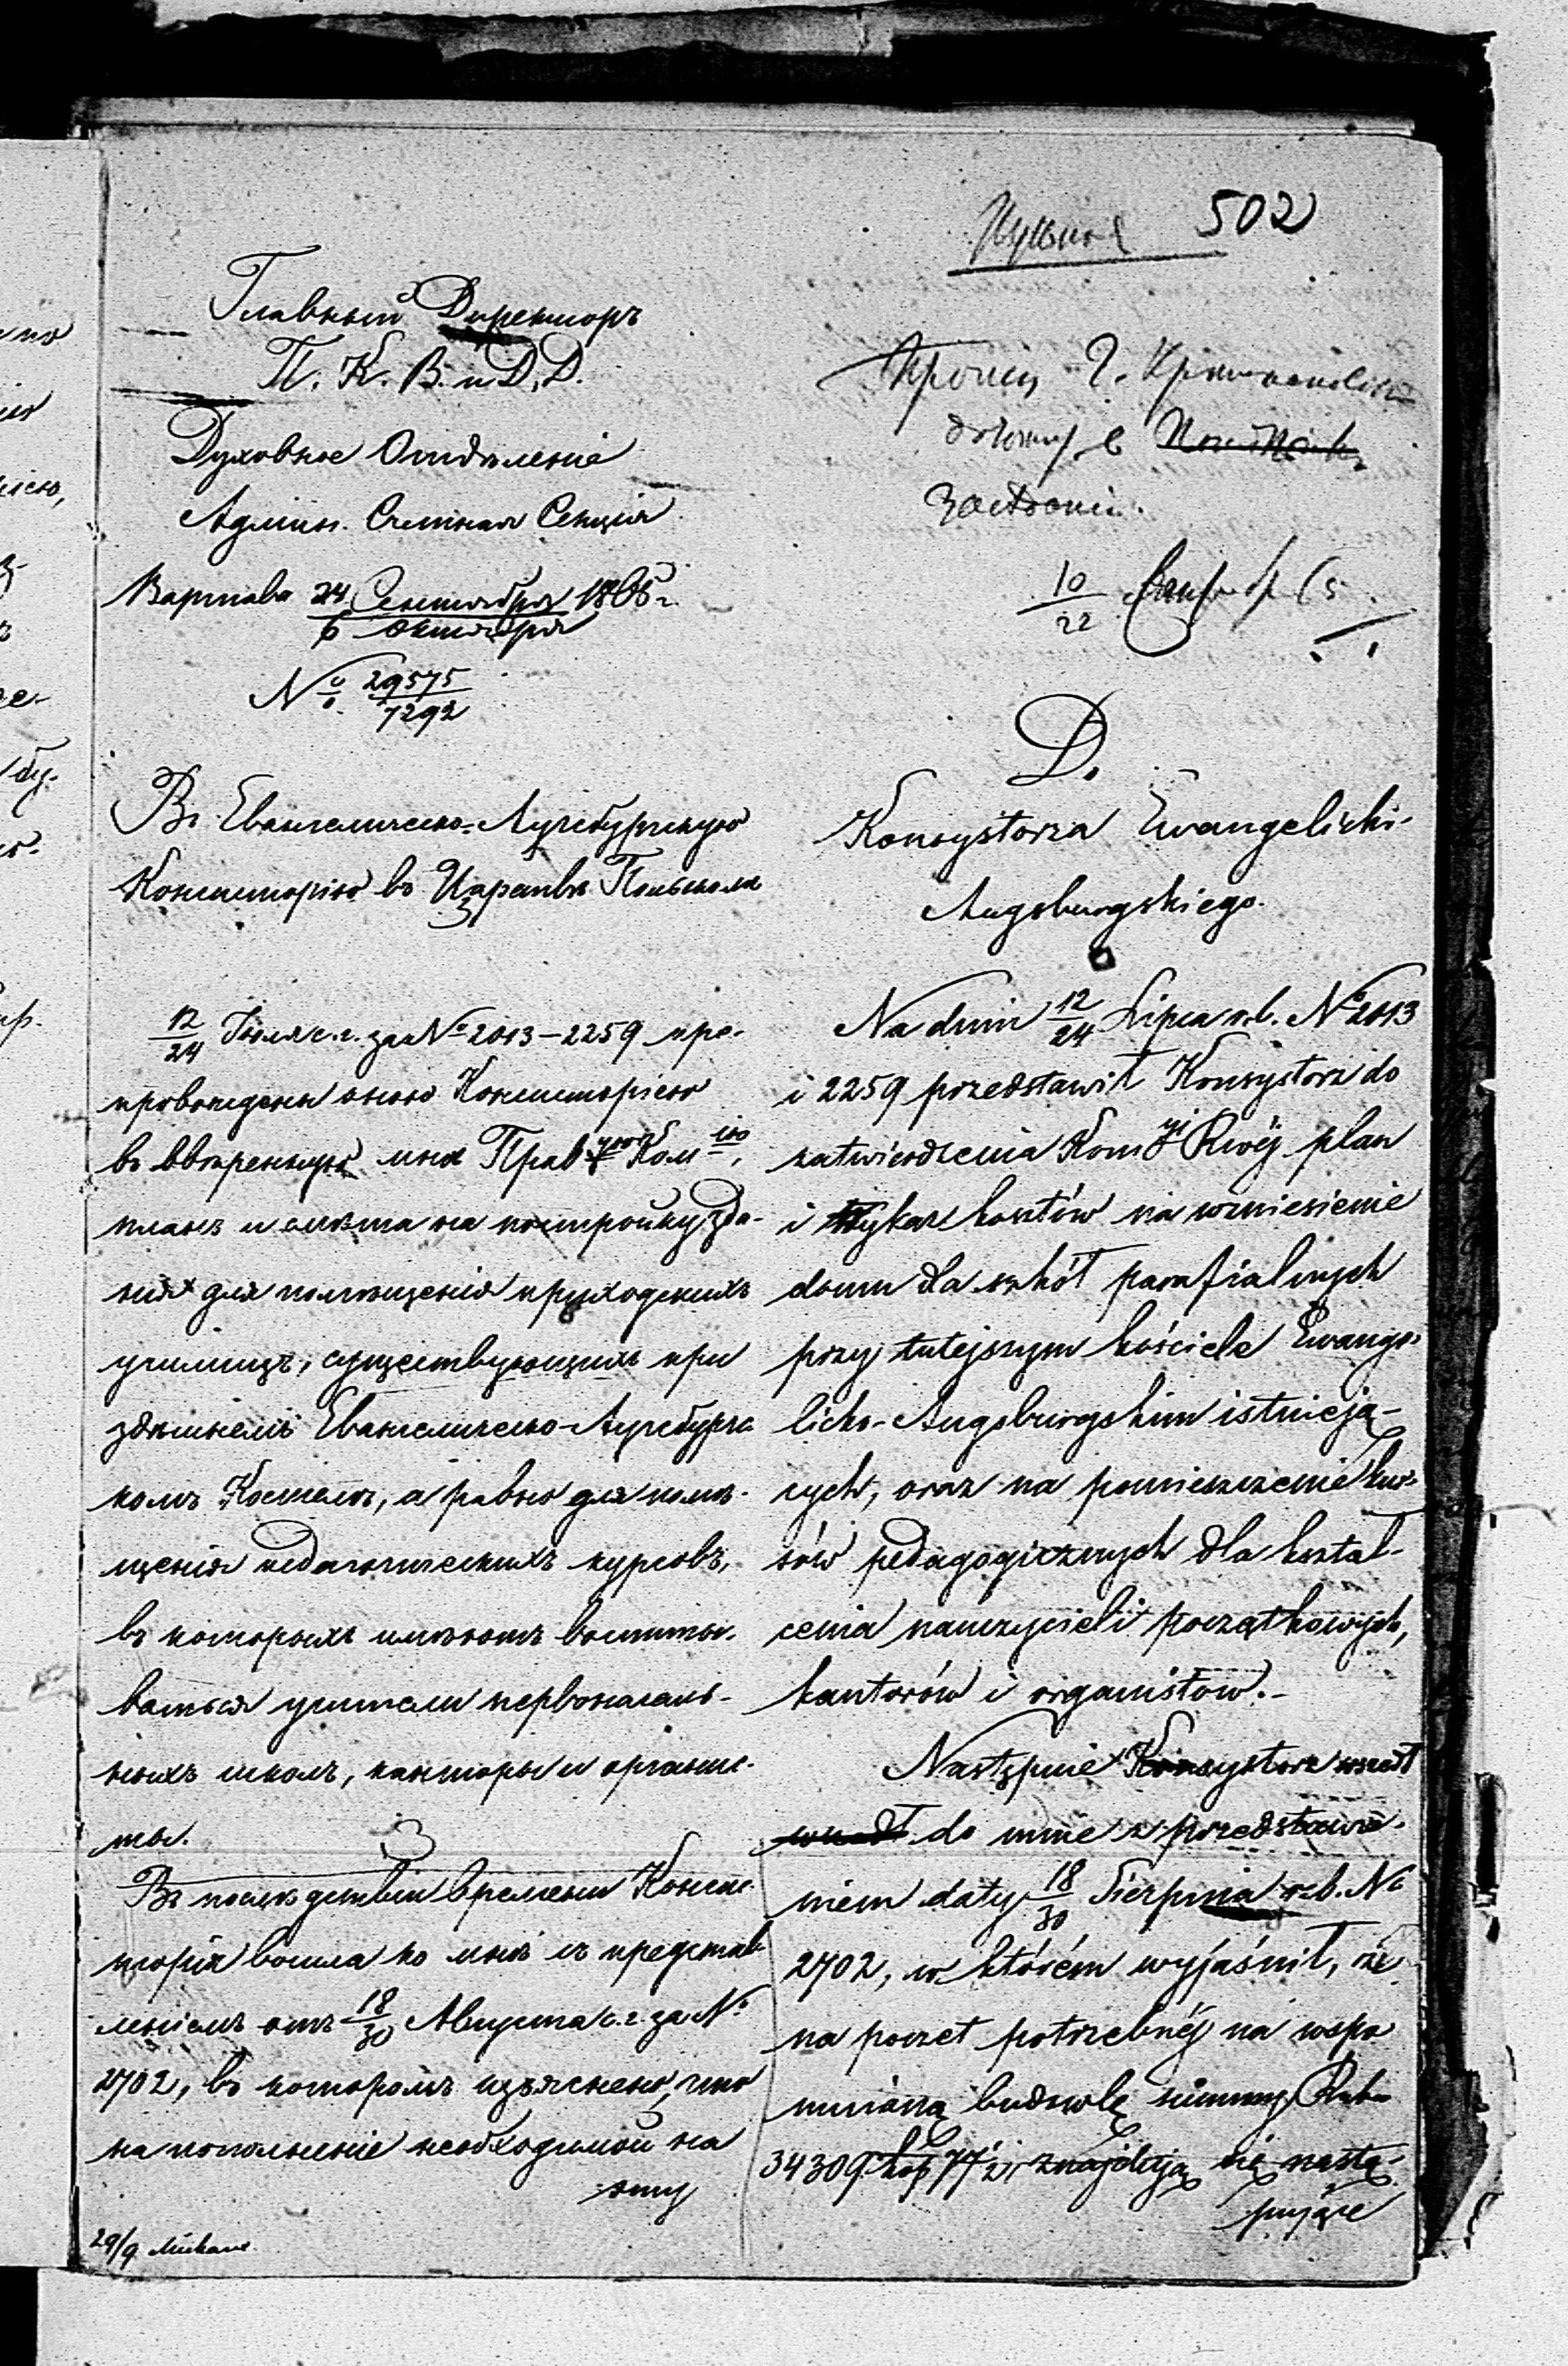 502
Главный Директоръ
П. К. В. и Д. Д.
Духовное Отдѣленіе
Админ. Счетная Секція
Варшава 24 Сентября / 6 Октября 1865 г.
№ 29575/7292
Въ Евангелическо-Аугсбургскую
Консисторію въ Царствѣ Польскомъ
12/24 Іюля с. г. за № 2013–2259 пре-
провождены оною Консисторіею
въ ввѣренную мнѣ Прав. Ком.
планъ и смѣта на постройку зда-
нія для помѣщенія приходскихъ
училищъ, существующихъ при
здѣшнемъ Евангелическо-Аугсбургс-
комъ Костелѣ, а равно для помѣ-
щенія педагогическихъ курсовъ,
въ которыхъ имѣютъ воспиты-
ваться учители первоначаль-
ныхъ школъ, канторы и органис-
ты.
Въ послѣдствіи времени Консис-
торія вошла ко мнѣ съ представ-
леніемъ отъ 18/30 Августа с. г. за №
2702, въ которомъ изъяснено, что
на пополненіе необходимой на
эту
29/9
10/22 65
D.
Konsystorza Ewangelicko-
Augsburgskiego.
Na dniu 12/24 Lipca r. b. № 2013
i 2259 przedstawił Konsystorz do
zatwierdzenia Kom. Rwéj plan
i wykaz kosztów na wzniesienie
domu dla szkół parafialnych
przy tutejszym kościele Ewange-
licko-Augsburgskim istnieją-
cych, oraz na pomieszczenie kur-
sów pedagogicznych dla kształ-
cenia nauczycieli początkowych,
kantorów i organistów.-
Następnie Konsystorz wszedł
do mnie z przedstawie-
niem daty 18/30 Sierpnia r. b. №
2702, w którém wyjaśnił, że
na poczet potrzebnéj na wspo
mnianą budowlę summy Rub.
34309 kop 77½ znajdują się nastę-
pujące